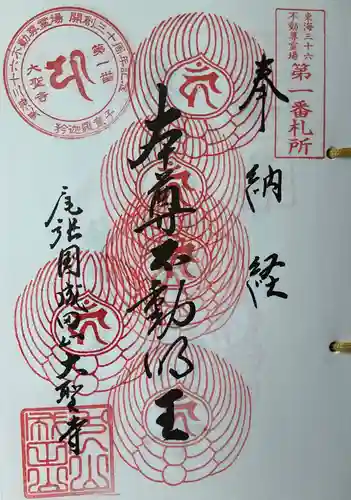 東海三十六
不動尊霊場
第一番札所
奉納経
本尊不動明王
東海三十六不動尊霊場 開創三十周年記念
第一番
大聖寺
矜迦羅童子
尾張国成田山大聖寺